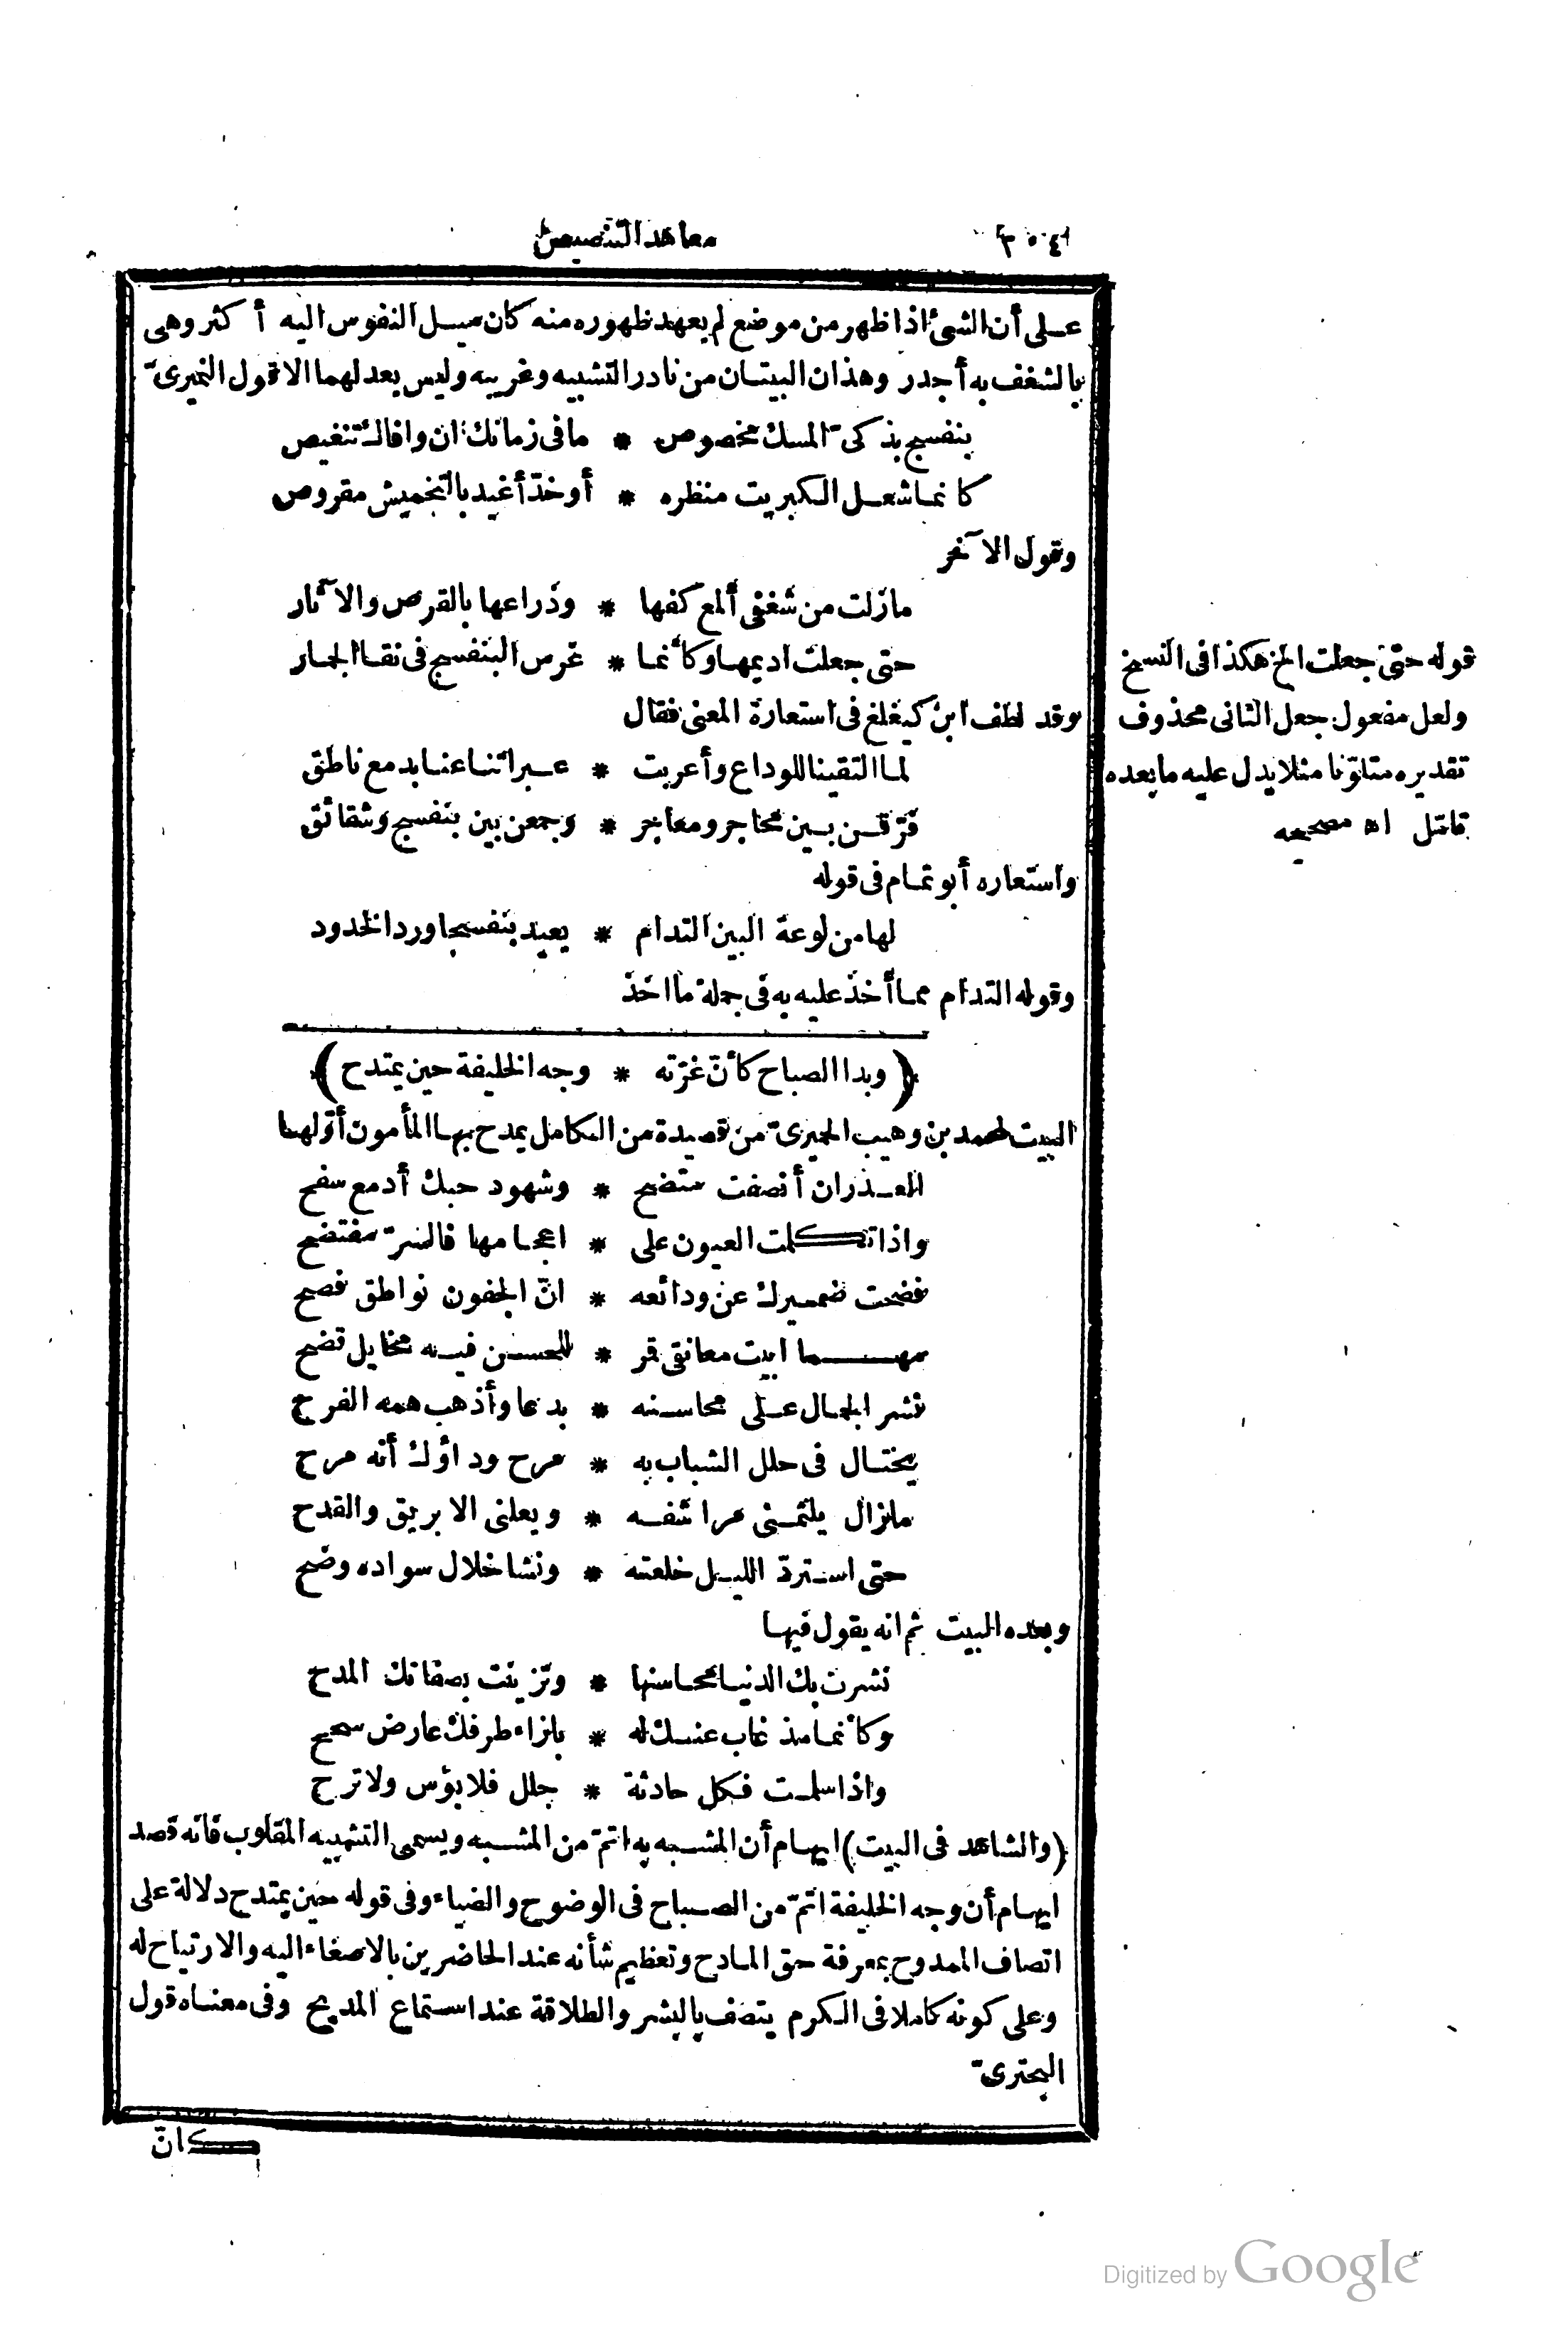 ٢٥٤
معاهد التنصيص
على أن الشيء اذا ظهر من موضع لم يعهد ظهوره منه كان ميل النفوس اليه أكثر وهى
بالشغف به أجدر وهذان البيتان من نادر التشبيه وغريبه وليس يعدلهما الا قول النميرىّ
بنفسج بذكىّ المسك مخصوص * ما فى زمانك ان وافاك تنغيص
كانما شعل الكبريت منظره * أو خدّ أغيد بالتخميش مقروص
وقول الآخر
مازلت من شغفى ألمع كفها * وذراعها بالقرص والآثار
حتى جعلت اديمها وكأنما * غرس البنفسج فى نقا الجمار
وقد لطف ابن كيغلغ فى استعارة المعنى فقال
لما التقينا للوداع وأعربت * عبراتنا عنا بدمع ناطق
فرّقن بين محاجر ومعاجر * وجمعن بين بنفسج وشقائق
واستعاره أبو تمام فى قوله
لها من لوعة البين التدام * يعيد بنفسجا ورد الخدود
وقوله التدام مما أخذ عليه به فى جملة ما اخذ
(وبدا الصباح كأنّ غرّته * وجه الخليفة حين يمتدح)
البيت لمحمد بن وهيب الحميرىّ من قصيدة من الكامل يمدح بها المأمون أوّلها
العذر ان أنصفت متضح * وشهود حبك أدمع سفح
واذا تكلمت العيون على * اعجامها فالسرّ مفتضح
فضحت ضميرك عن ودائعه * انّ الجفون نواطق فصح
مهما ابيت معانقى قمر * للحسن فيه مخايل تضح
نشر الجمال على محاسنه * بدعا وأذهب همه الفرح
يختال فى حلل الشباب به * مرح وداؤك أنه مرح
مازال يلثمنى مراشفه * ويعلنى الابريق والقدح
حتى استردّ الليل خلعته * ونشا خلال سواده وضح
وبعده البيت ثم انه يقول فيها
نشرت بك الدنيا محاسنها * وتزينت بصفاتك المدح
وكأنما مذ غاب عنك له * بازاء طرفك عارض سمح
واذا سلمت فكل حادثة * جلل فلا بؤس ولا ترح
(والشاهد فى البيت) ايهام أن المشبه به اتمّ من المشبه ويسمى التشبيه المقلوب فانه قصد
ايهام أن وجه الخليفة اتمّ من الصباح فى الوضوح والضياء وفى قوله حين يمتدح دلالة على
اتصاف الممدوح بمعرفة حق المادح وتعظيم شأنه عند الحاضرين بالاصغاء اليه والارتياح له
وعلى كونه كاملا فى الكرم يتصف بالبشر والطلاقة عند استماع المديح وفى معناه قول
البحترىّ
كانّ
قوله حتى جعلت الخ هكذا فى النسخ
ولعل مفعول جعل الثانى محذوف
تقديره متلوّنا مثلا يدل عليه ما بعده
تامّل اه مصححه
Digitized by Google